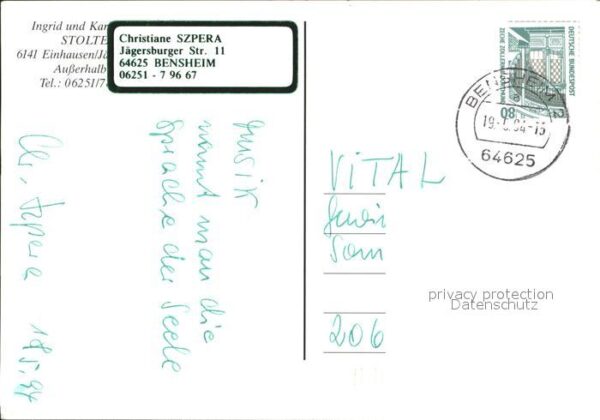 Ingrid und Kar
STOLTE
6141 Einhausen/Jä
Außerhalb
Tel.: 06251/7
Christiane SZPERA
Jägersburger Str. 11
64625 BENSHEIM
06251 - 7 96 67
DEUTSCHE BUNDESPOST
ZECHE ZOLLERN
80
BENSHEIM 2
64625
Musik
nennt man die
Sprache der Seele
Chr. Szpera 18.5.94
VITAL
206
privacy protection
Datenschutz